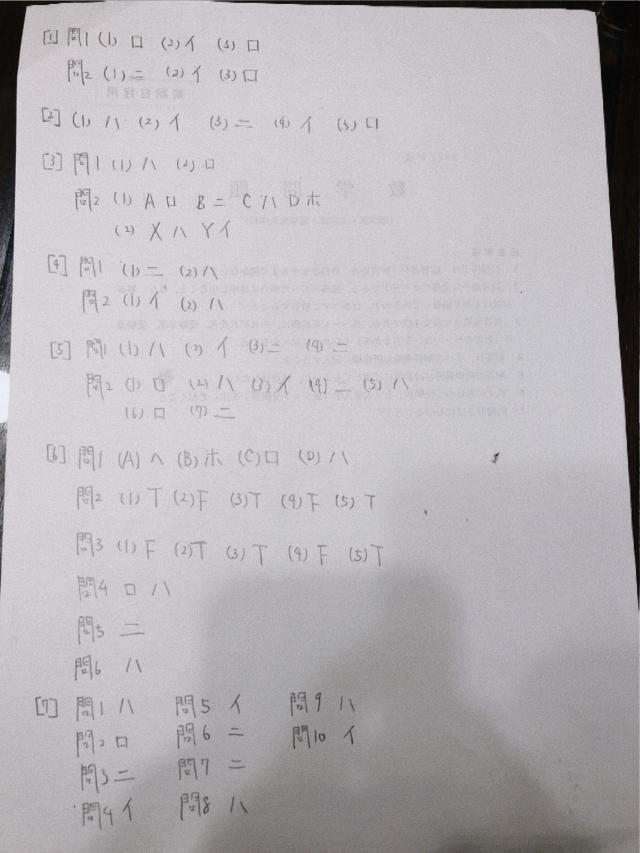 [1] 問1 (1) ロ (2) イ (3) ロ
問2 (1) ニ (2) イ (3) ロ
[2] (1) ハ (2) イ (3) ニ (4) イ (5) ロ
[3] 問1 (1) ハ (2) ロ
問2 (1) A ロ B ニ C ハ D ホ
(2) X ハ Y イ
[4] 問1 (1) ニ (2) ハ
問2 (1) イ (2) ハ
[5] 問1 (1) ハ (2) イ (3) ニ (4) ニ
問2 (1) ロ (2) ハ (3) イ (4) ニ (5) ハ
(6) ロ (7) ニ
[6] 問1 (A) ヘ (B) ホ (C) ロ (D) ハ
問2 (1) T (2) F (3) T (4) F (5) T
問3 (1) F (2) T (3) T (4) F (5) T
問4 ロ ハ
問5 ニ
問6 ハ
[7] 問1 ハ 問5 イ 問9 ハ
問2 ロ 問6 ニ 問10 イ
問3 ニ 問7 ニ
問4 イ 問8 ハ
数学問題
前期日程用